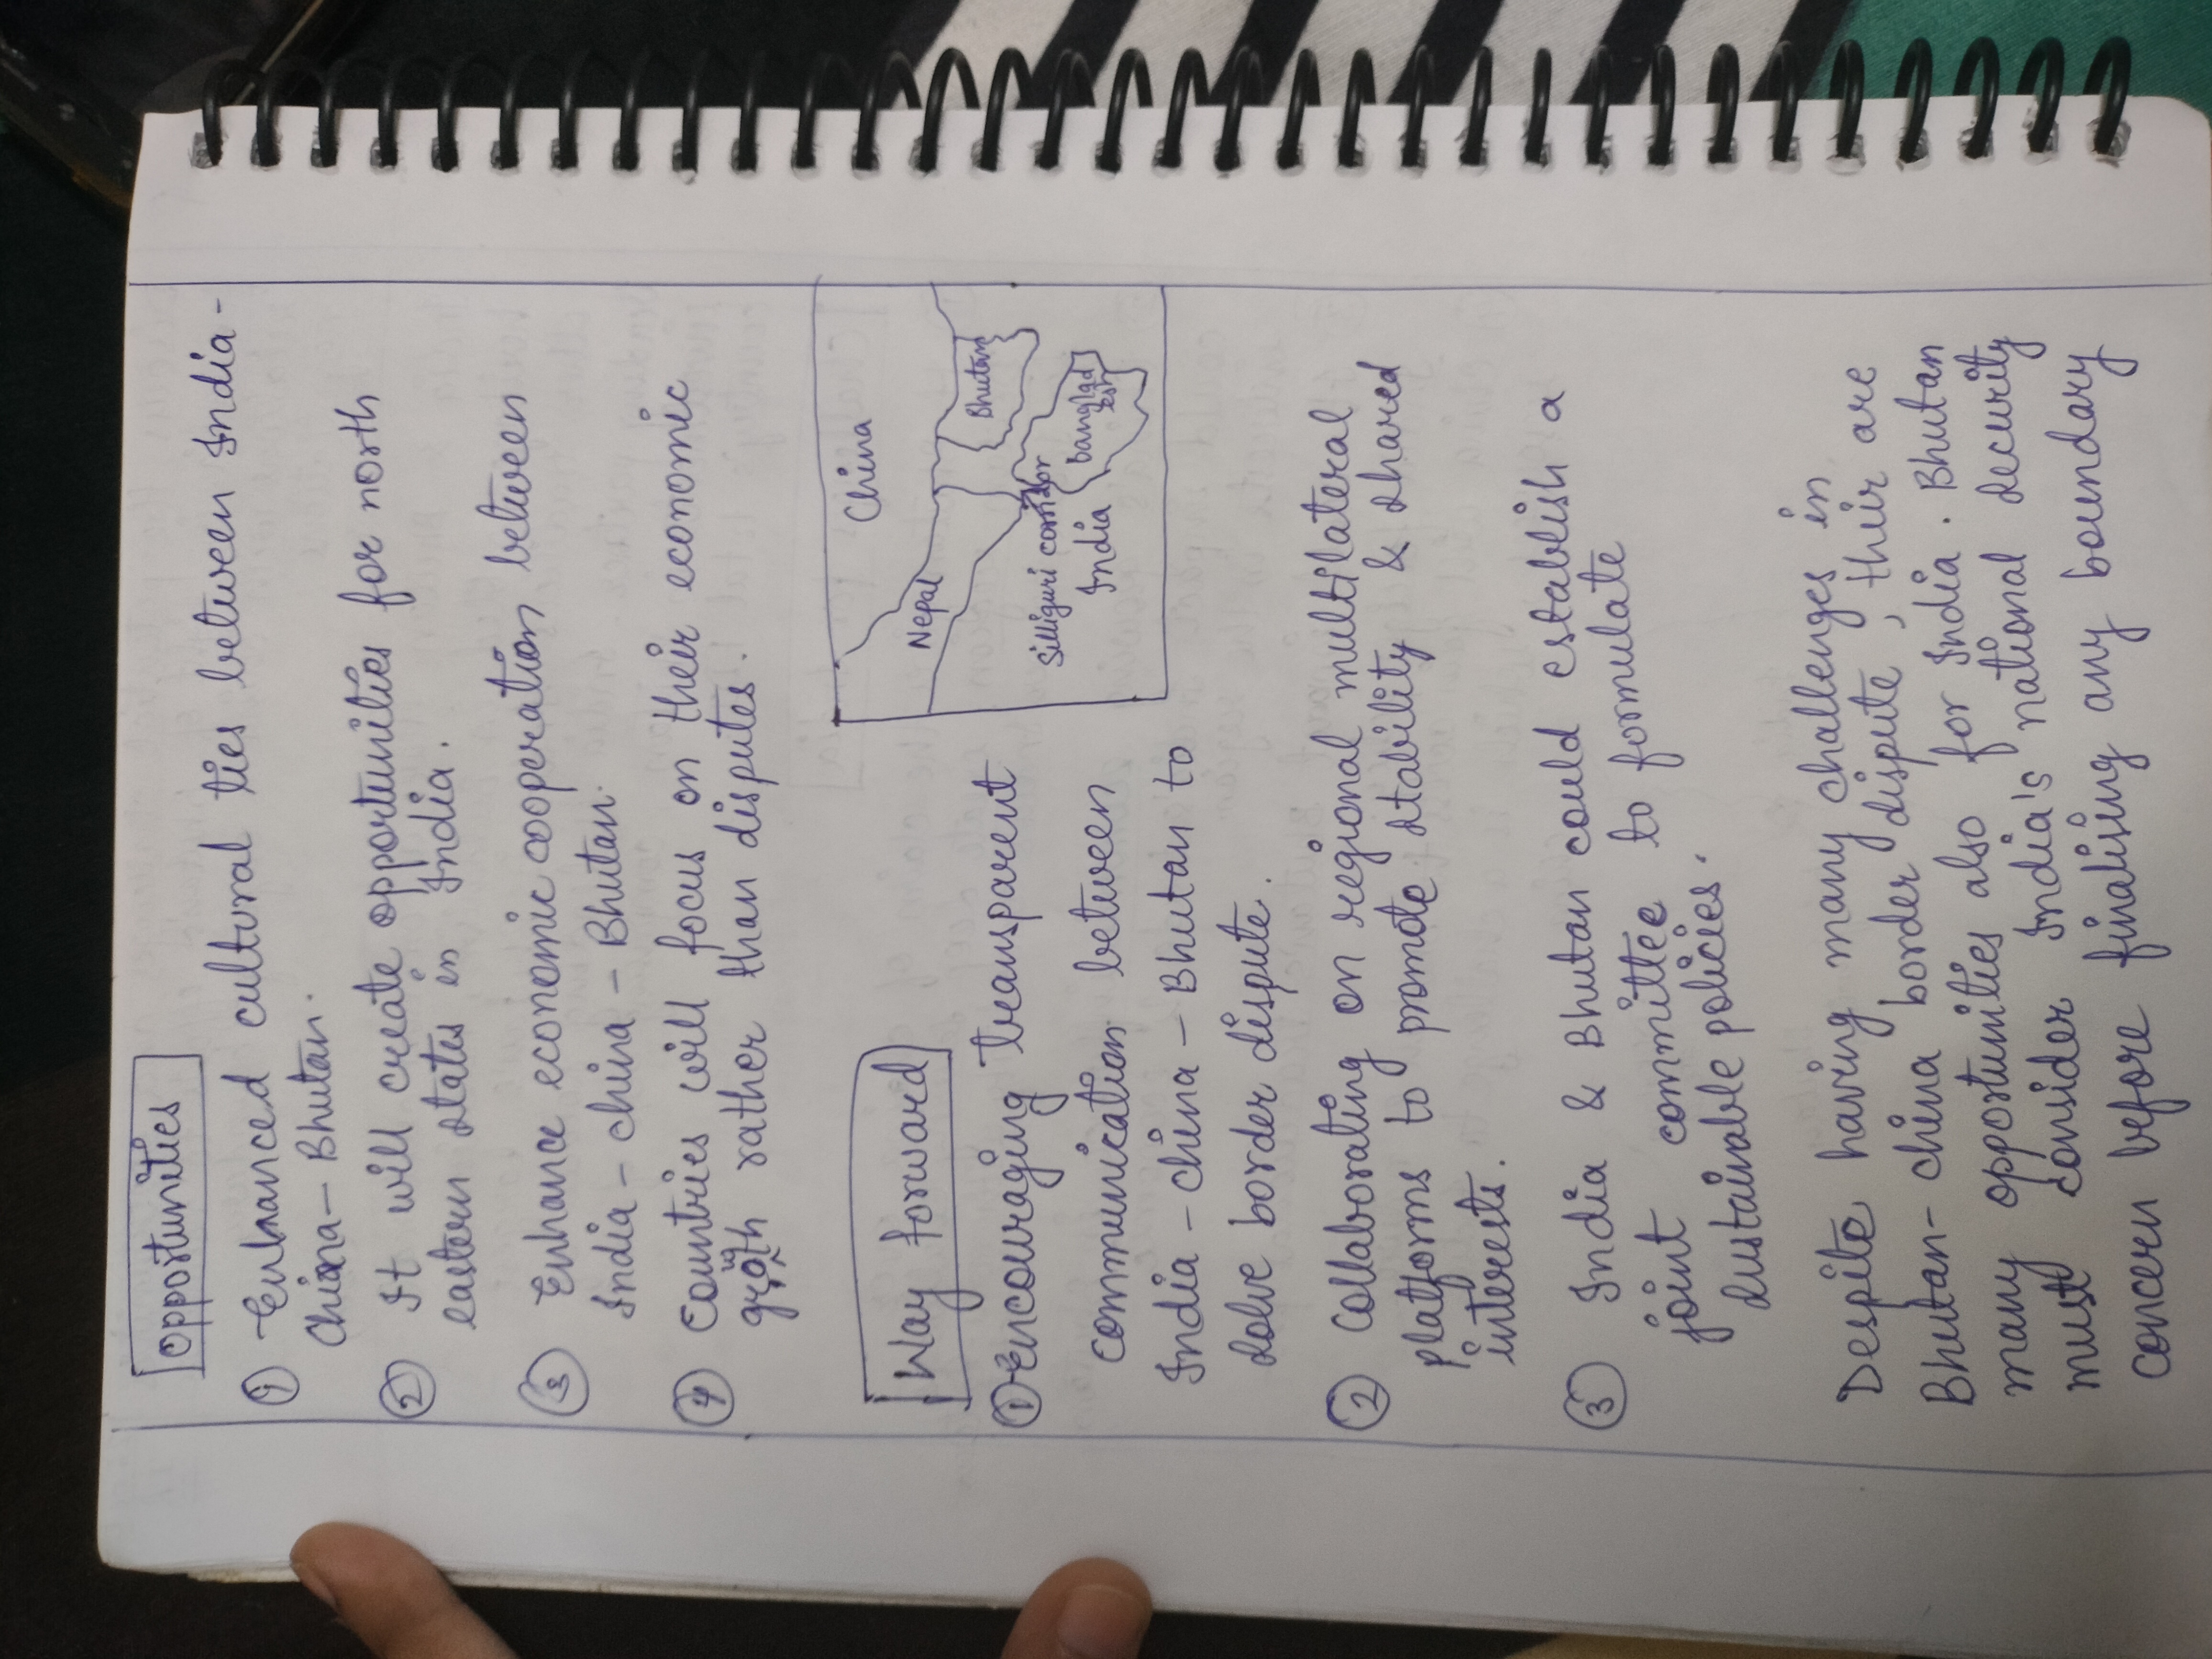 Opportunities
① Enhanced cultural ties between India-
China- Bhutan.
② It will create opportunities for north
eastern states in India.
③ Enhance economic cooperation between
India - China - Bhutan.
④ Countries will focus on their economic
growth rather than disputes.
Way forward
① Encouraging transparent
communication between
India - China - Bhutan to
solve border dispute.
China
Nepal
Bhutan
Silliguri corridor
banglad
esh
India
② Collaborating on regional multilateral
platforms to promote stability & shared
interests.
③ India & Bhutan could establish a
joint committee to formulate
sustainable policies.
Despite having many challenges in
Bhutan- China border dispute, their are
many opportunities also for India. Bhutan
must consider India's national security
concern before finalising any boundary